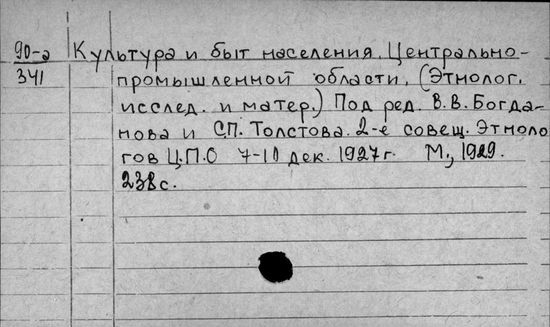 90-а Культура и быт населения Центрально-
341 промышленной области. (Этнолог.
исслед. и матер.) Под ред. В.В. Богда-
нова и С.П. Толстова. 2-е совещ. Этноло
гов Ц.П.О 7-10 дек. 1927г. М., 1929.
238с.